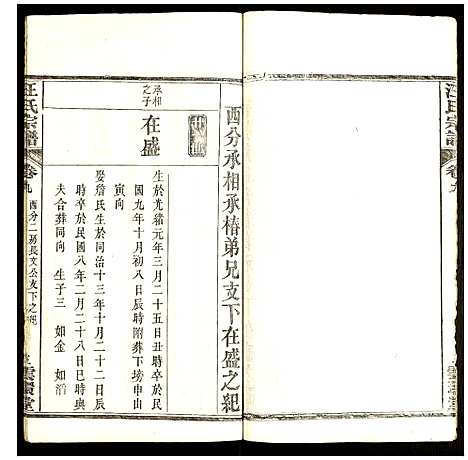 汪氏宗譜
卷九
西分承相承椿弟兄支下在盛之紀
承相之子
在盛
生於光緒元年三月二十五日丑時卒於民
國九年十月初八日辰時附葬下塝申山
寅向
娶詹氏生於同治十三年十月二十二日辰
時卒於民國八年二月二十八日巳時與
夫合葬同向 生子三 如金 如滔
汪氏宗譜
卷九
西分二房長文公支下之紀